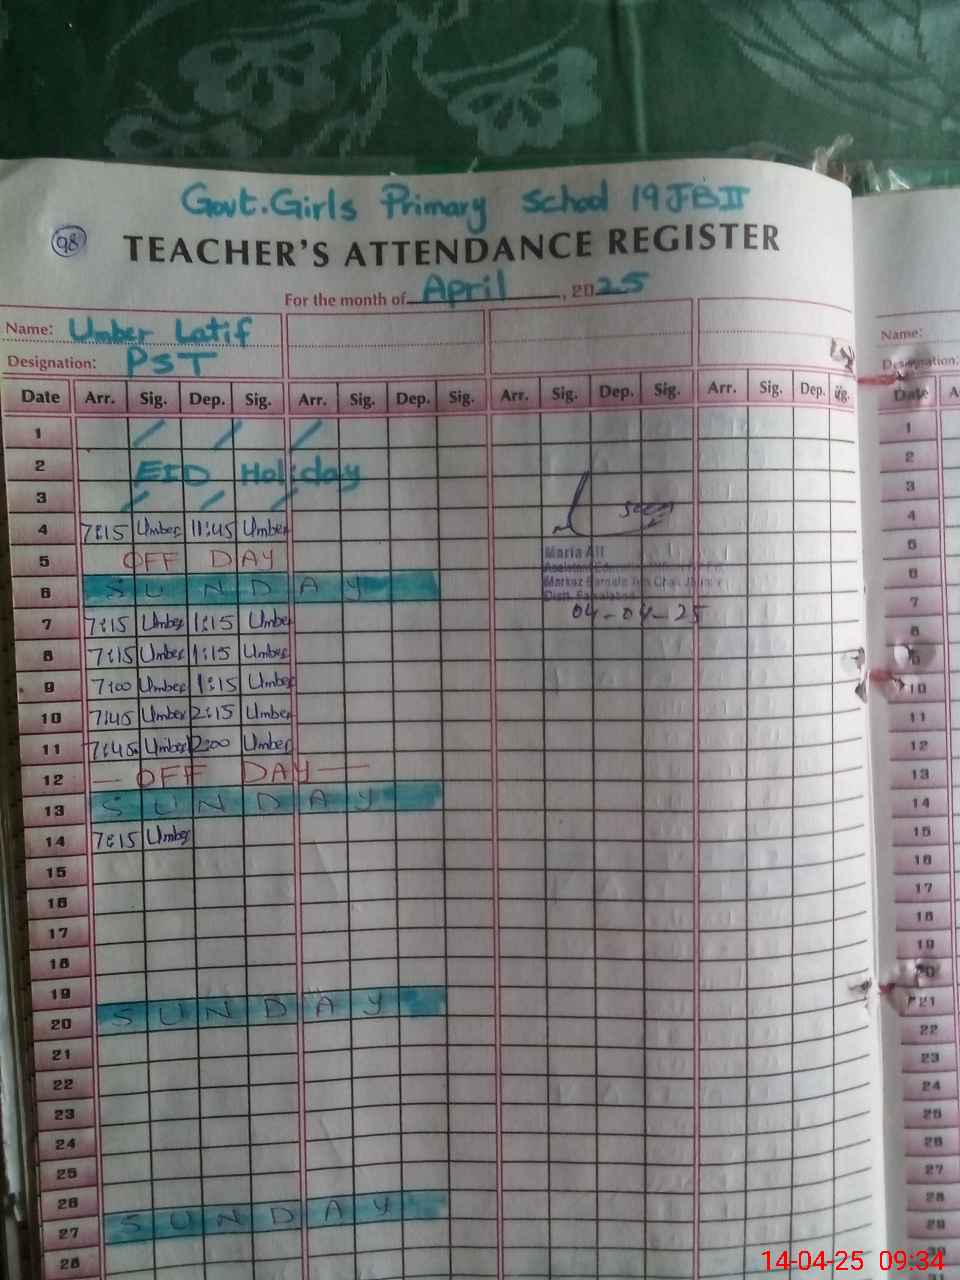 Govt. Girls Primary School 19 JB II
98
TEACHER'S ATTENDANCE REGISTER
For the month of April, 2025
Name: Umber Latif
Designation: PST
Date Arr. Sig. Dep. Sig. Arr. Sig. Dep. Sig. Arr. Sig. Dep. Sig. Arr. Sig. Dep. Sig.
1
2 EID Holiday
3
4 7:15 Umber 11:45 Umber
seen
5 OFF DAY
Maria Ali
6 SUNDAY
04-04-25
7 7:15 Umber 1:15 Umber
8 7:15 Umber 1:15 Umber
9 7:00 Umber 1:15 Umber
10 7:45 Umber 2:15 Umber
11 7:45 Umber 2:00 Umber
12 — OFF DAY —
13 SUNDAY
14 7:15 Umber
15
16
17
18
19
20 SUNDAY
21
22
23
24
25
26
27 SUNDAY
28
Name:
Designation:
Date A
1
2
3
4
5
6
7
8
9
10
11
12
13
14
15
16
17
18
19
20
21
22
23
24
25
26
27
28
29
30
14-04-25 09:34